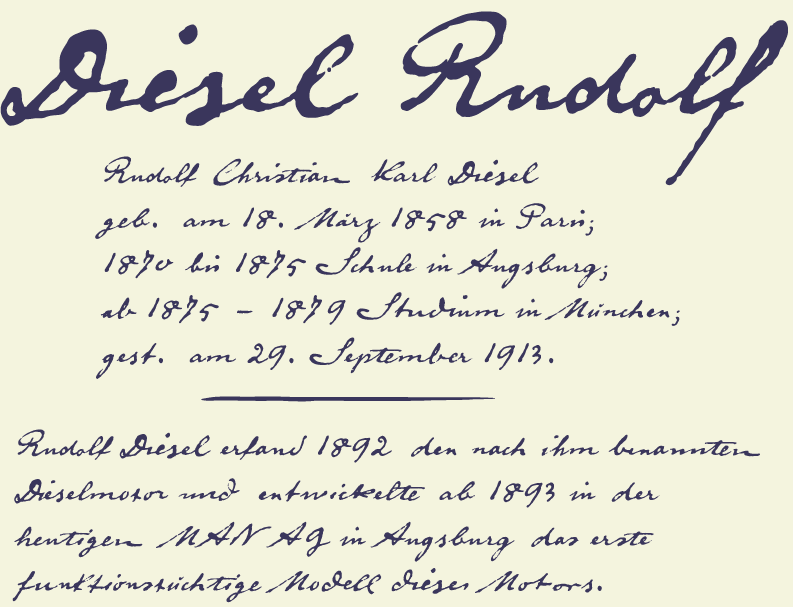 Diesel Rudolf
Rudolf Christian Karl Diesel
geb. am 18. März 1858 in Paris;
1870 bis 1875 Schule in Augsburg;
ab 1875 - 1879 Studium in München;
gest. am 29. September 1913.
Rudolf Diesel erfand 1892 den nach ihm benannten
Dieselmotor und entwickelte ab 1893 in der
heutigen MAN AG in Augsburg das erste
funktionstüchtige Modell dieses Motors.